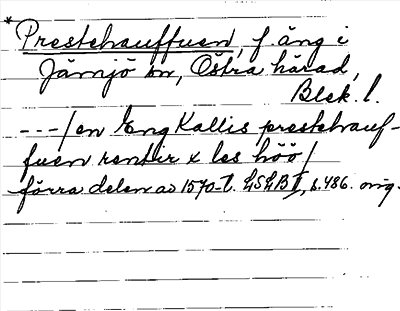 * Prestehauffuen, f. äng i
Jämjö sn, Östra härad,
Blek. l.
---/en Eng Kallis prestehauf-
fuen rentir x les höö/
förra delen av 1570-t. LSLB I, s. 486. orig.